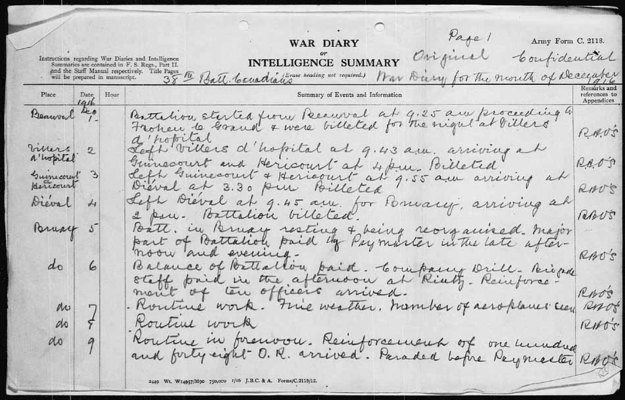 Page 1
WAR DIARY
OR
INTELLIGENCE SUMMARY
Original Confidential
Army Form C. 2118.
Instructions regarding War Diaries and Intelligence
Summaries are contained in F. S. Regs., Part II.
and the Staff Manual respectively. Title Pages
will be prepared in manuscript.
38th Batt. Canadians
(Erase heading not required.)
War Diary for the month of December 1916
Place Date Hour Summary of Events and Information Remarks and references to Appendices
1916
Dec
Beauval 1. Battalion started from Beauval at 9.25 am proceeding to
Frohen le Grand & were billeted for the night at Villers
d'hopital R.H.O'S
Villers d'hopital 2 Left Villers d'hopital at 9.43 am. arriving at
Guinecourt and Hericourt at 4 pm. Billeted R.H.O'S
Guinecourt & Hericourt 3 Left Guinecourt & Hericourt at 9.55 am arriving at
Diéval at 3.30 pm Billeted R.H.O'S
Diéval 4 Left Diéval at 9.45 am. for Bruay, arriving at
2 pm. Battalion billeted. R.H.O'S
Bruay 5 Batt. in Bruay resting & being reorganised. Major
part of Battalion paid by Paymaster in the late after-
noon and evening. R.H.O'S
do 6 Balance of Battalion paid. Company Drill. Brigade
staff paid in the afternoon at Reinforce-
ment of ten officers arrived. R.H.O'S
do 7 Routine work. Fine weather. Number of aeroplanes seen R.H.O'S
do 8 Routine work R.H.O'S
do 9 Routine in forenoon. Reinforcement of one hundred
and forty eight O.R. arrived. Paraded before Paymaster R.H.O'S
2449 Wt. W14957/M90 750,000 1/16 J.B.C. & A. Forms/C.2118/12.